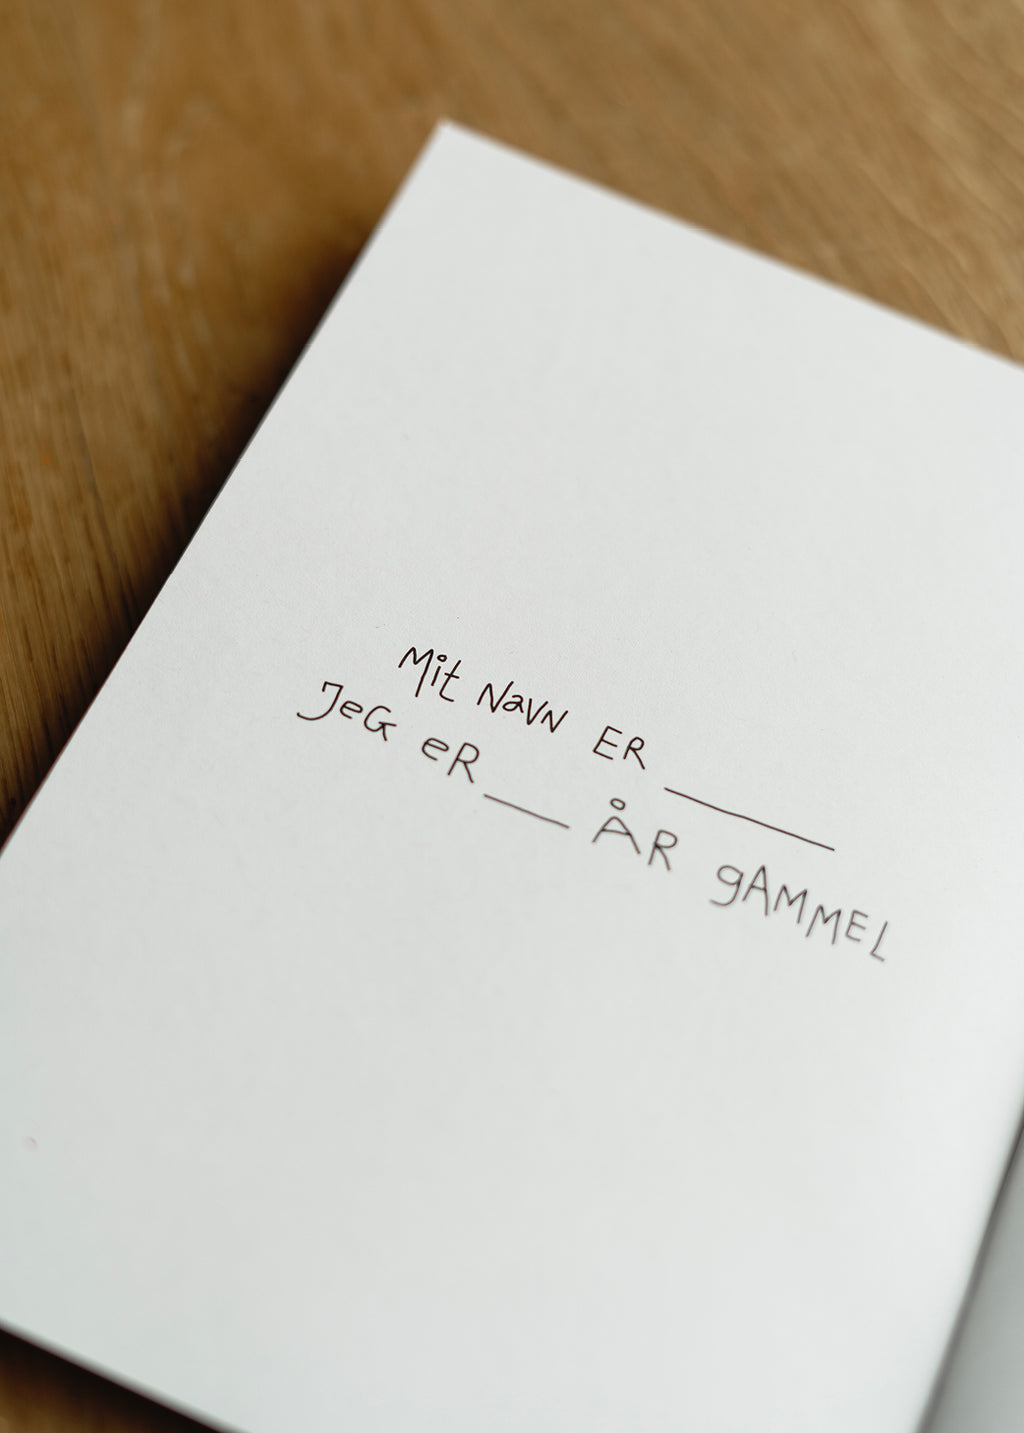 Mit Navn ER ______
JeG eR ___ ÅR gAMMEL